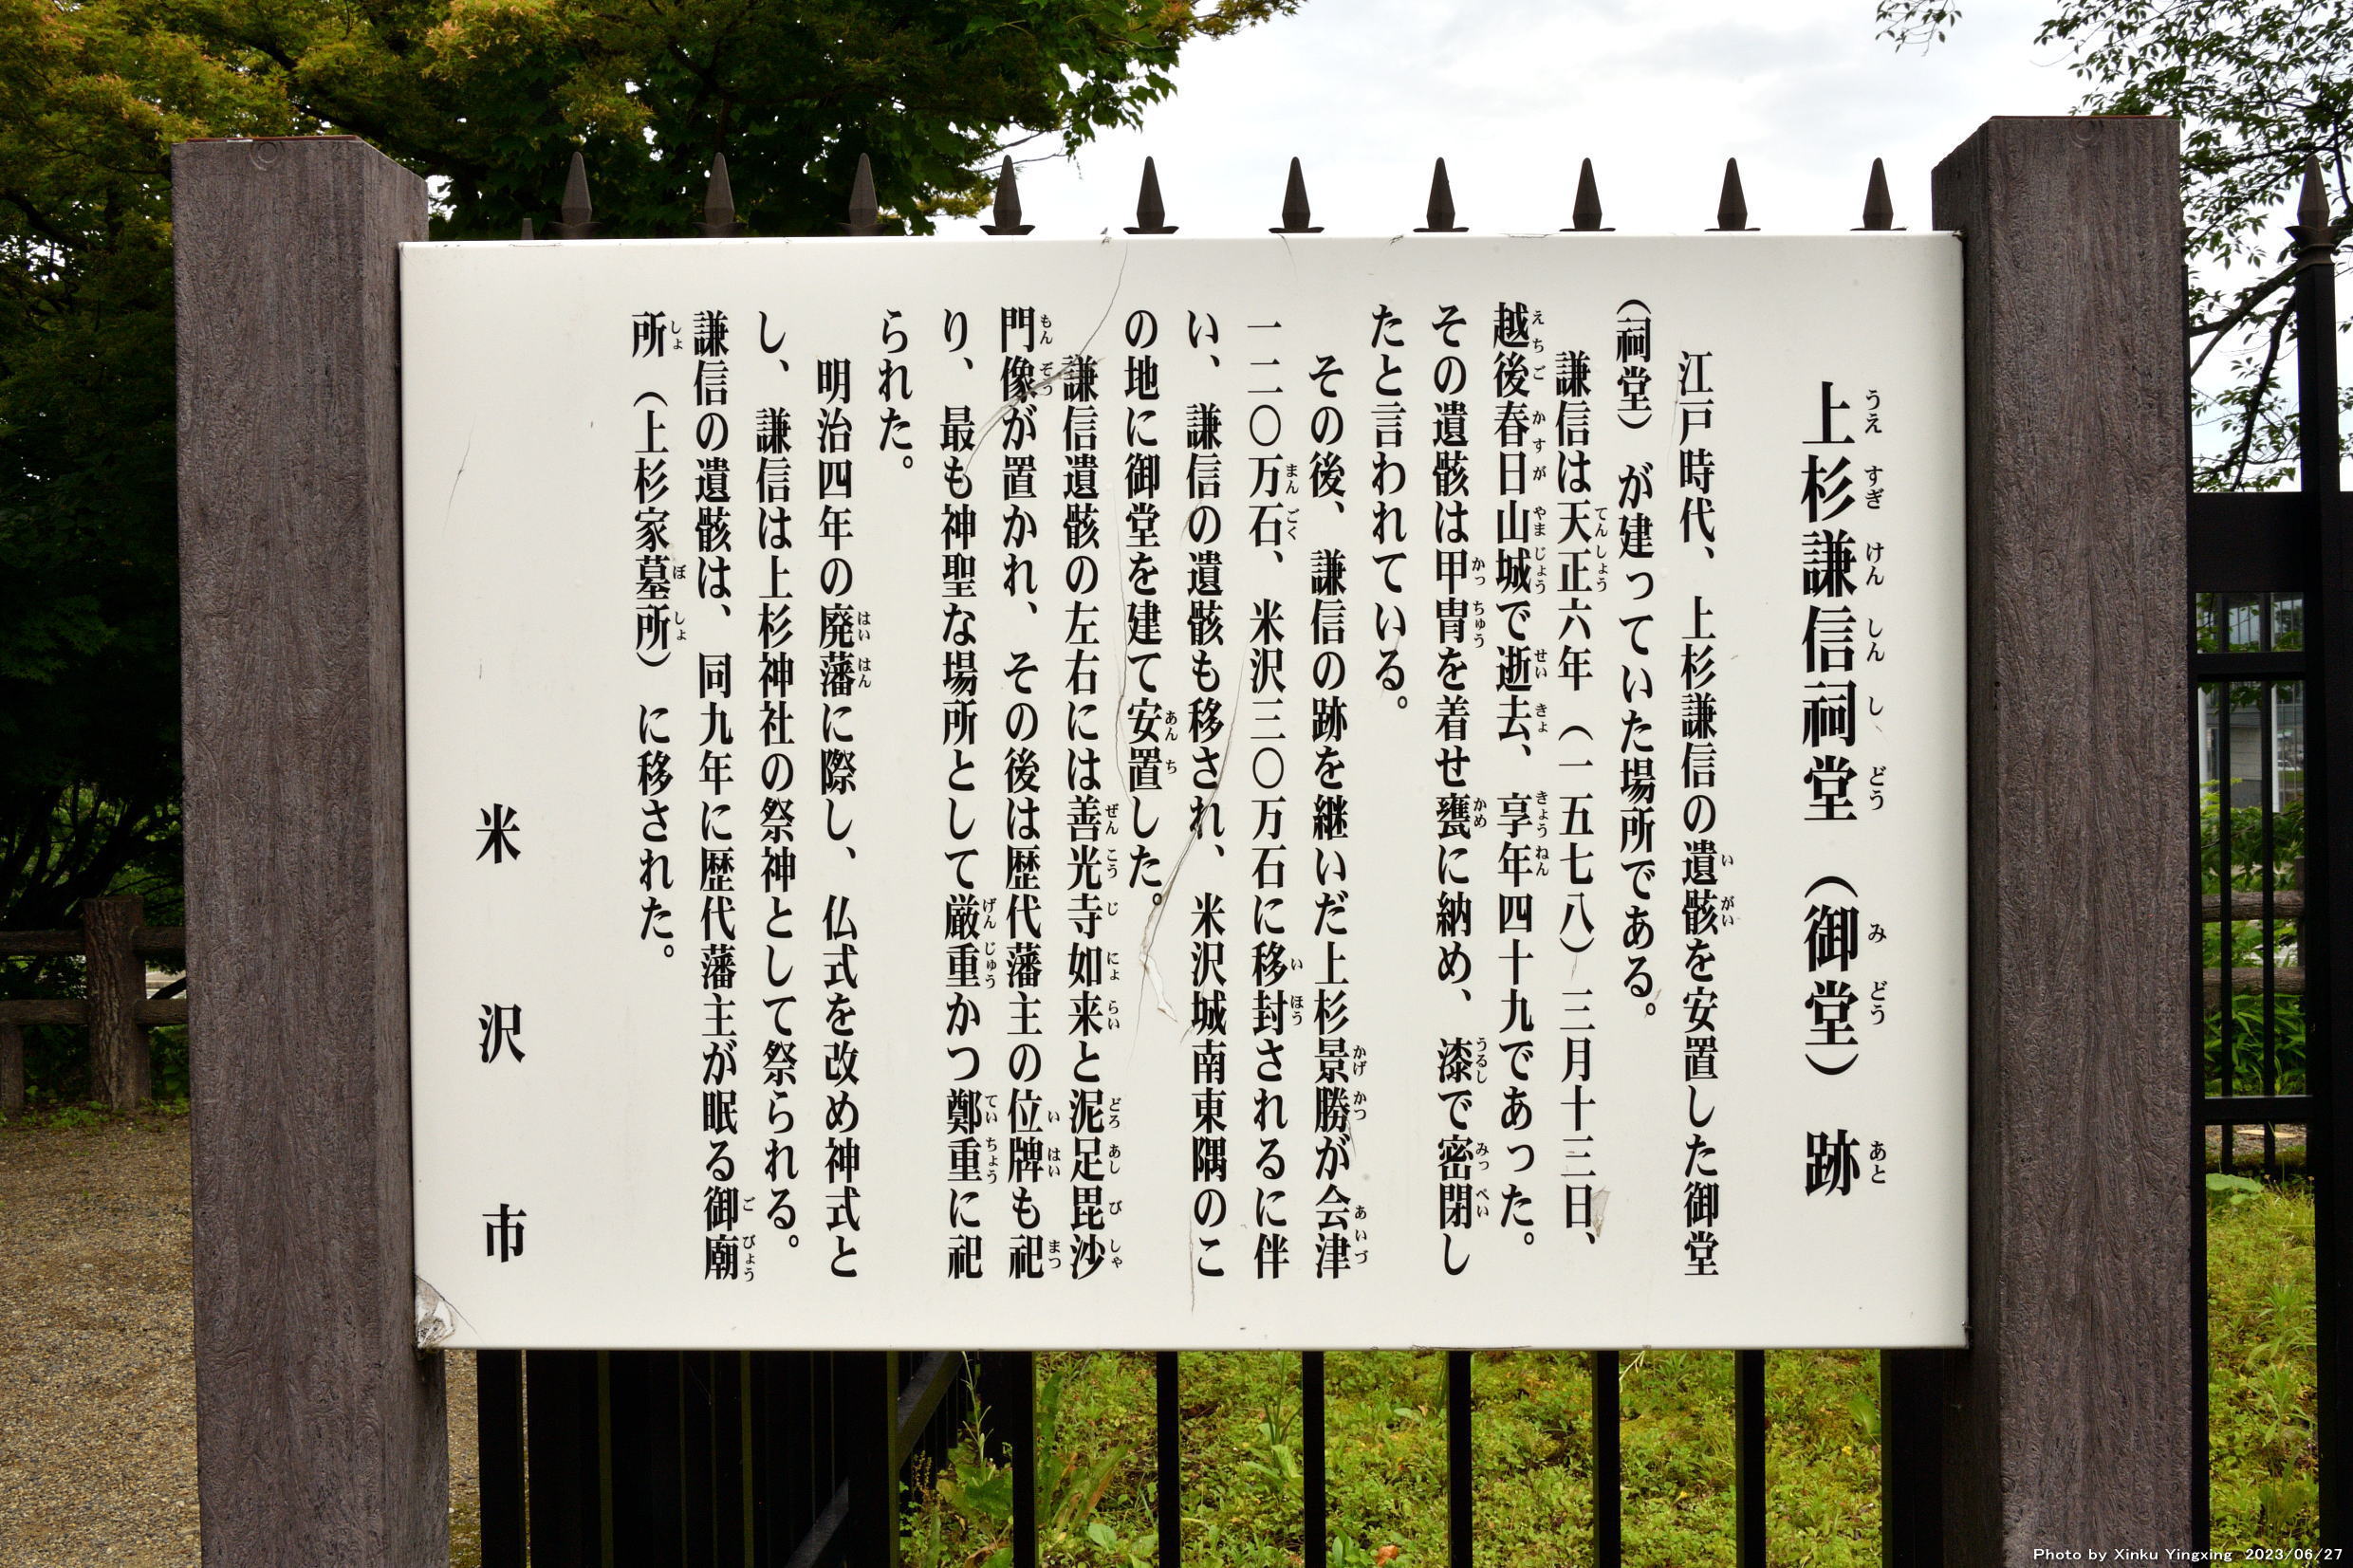 上杉謙信祠堂（御堂）跡
江戸時代、上杉謙信の遺骸を安置した御堂
（祠堂）が建っていた場所である。
謙信は天正六年（一五七八）三月十三日、
越後春日山城で逝去、享年四十九であった。
その遺骸は甲冑を着せ甕に納め、漆で密閉し
たと言われている。
その後、謙信の跡を継いだ上杉景勝が会津
一二〇万石、米沢三〇万石に移封されるに伴
い、謙信の遺骸も移され、米沢城南東隅のこ
の地に御堂を建て安置した。
謙信遺骸の左右には善光寺如来と泥足毘沙
門像が置かれ、その後は歴代藩主の位牌も祀
り、最も神聖な場所として厳重かつ鄭重に祀
られた。
明治四年の廃藩に際し、仏式を改め神式と
し、謙信は上杉神社の祭神として祭られる。
謙信の遺骸は、同九年に歴代藩主が眠る御廟
所（上杉家墓所）に移された。
米沢市
Photo by Xinku Yingxing 2023/06/27